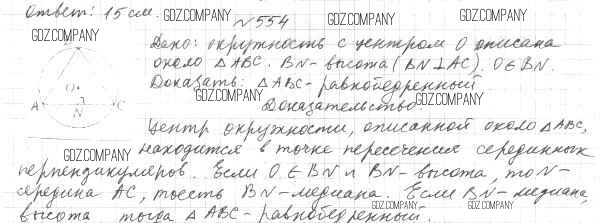 Ответ: 15 см. GDZ.COMPANY
№554 GDZ.COMPANY GDZ.COMPANY
GDZ.COMPANY
Дано: окружность с центром O описана
около △ABC. BN- высота (BN⊥AC), O∈BN.
Доказать: △ABC- равнобедренный
GDZ.COMPANY GDZ.COMPANY
Доказательство:
O
A N C
Центр окружности, описанной около △ABC,
GDZ.COMPANY находится в точке пересечения серединных
перпендикуляров. Если O∈BN и BN- высота, то N-
середина AC, тоесть BN-медиана. Если BN- медиана,
GDZ.COMPANY GDZ.COMPANY
высота тогда △ABC- равнобедренный.